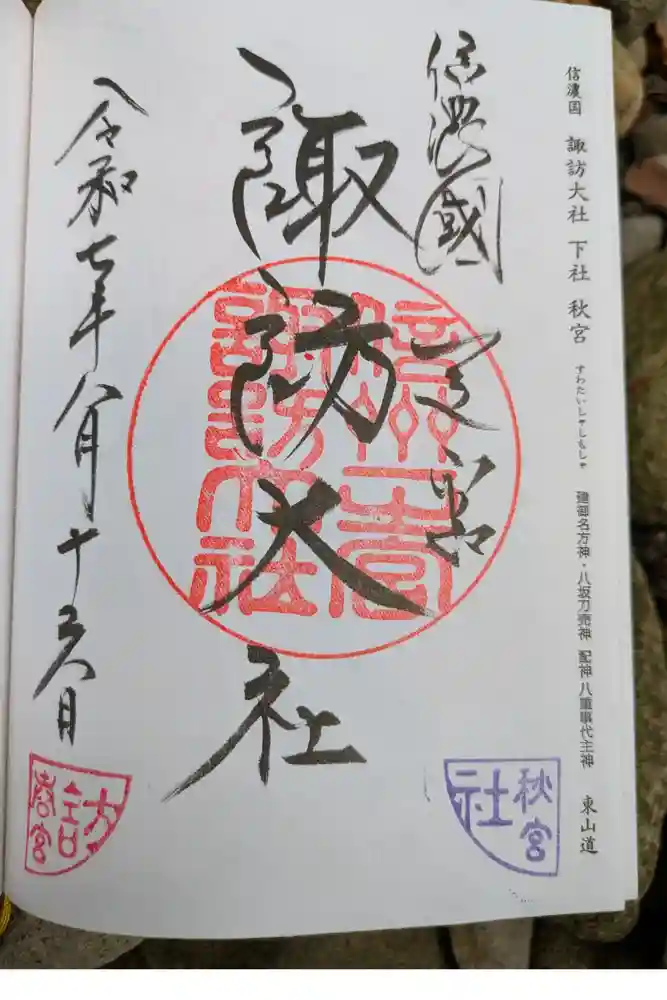 信濃国 諏訪大社 下社 秋宮 すわたいしゃしもしゃ 建御名方神・八坂刀売神 配神 八重事代主神 東山道
信濃國一之宮
諏訪大社
令和七年八月十六日
秋宮
社
訪
諏
春宮